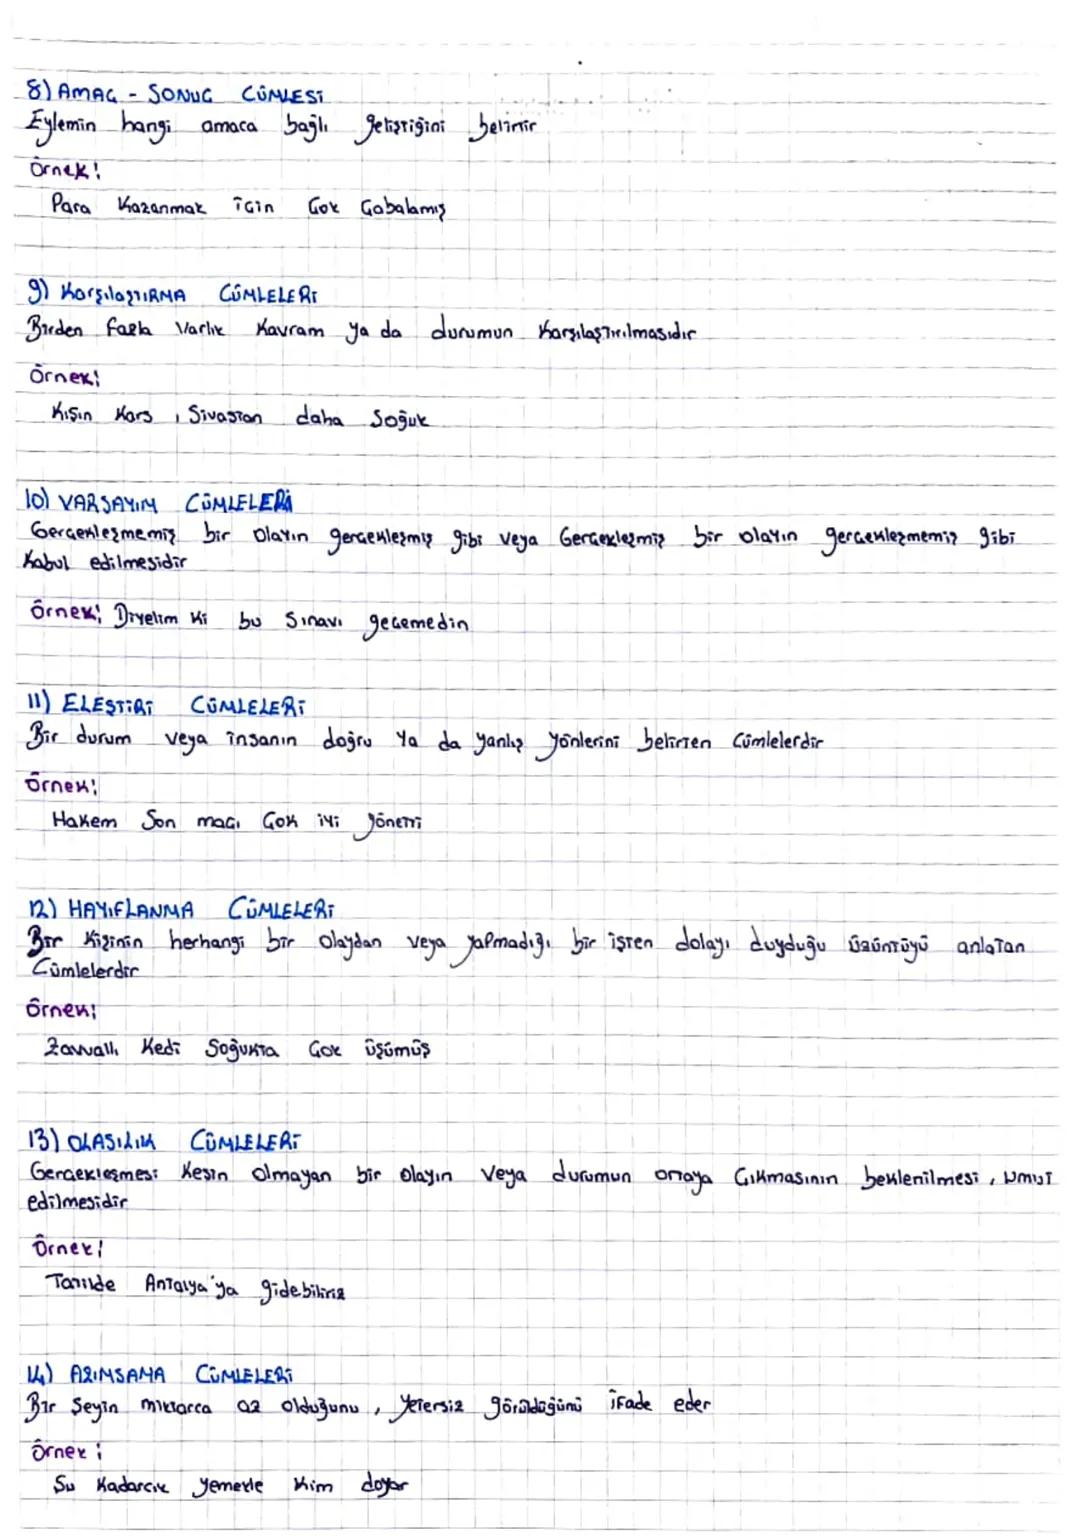 8) AMAÇ - SONUÇ CÜMLESİ
Eylemin hangi amaca bağlı geliştiğini belirtir
Örnek:
Para Kazanmak için Çok Çabalamış
9) KarşılaştIRMA CÜMLELERİ
Birden fazla Varlık Kavram ya da durumun Karşılaştırılmasıdır
Örnek:
Kışın Kars, Sivastan daha Soğuk
10) VARSAYIM CÜMLELERİ
Gerçekleşmemiş bir olayın gerçekleşmiş gibi veya Gerçekleşmiş bir olayın gerçekleşmemiş gibi
Kabul edilmesidir
Örnek: Diyelim ki bu Sınavı geçemedin
11) ELEŞTİRİ CÜMLELERİ
Bir durum veya insanın doğru ya da yanlış yönlerini belirten Cümlelerdir
Örnek:
Hakem Son maçı Çok iyi yönetti
12) HAYIFLANMA CÜMLELERİ
Bir Kişinin herhangi bir olaydan veya yapmadığı bir işten dolayı duyduğu üzüntüyü anlatan
Cümlelerdir
Örnek:
Zavvallı Kedi Soğukta Çok üşümüş
13) OLASILIK CÜMLELERİ
Gerçekleşmesi Kesin olmayan bir olayın veya durumun ortaya Çıkmasının beklenilmesi, umut
edilmesidir
Örnek:
Tatilde Antalya'ya gidebiliriz
14) AZIMSAMA CÜMLELERİ
Bir Şeyin miktarca az olduğunu, yetersiz görüldüğünü ifade eder
Örnek:
Şu Kadarcık yemekle Kim doyar